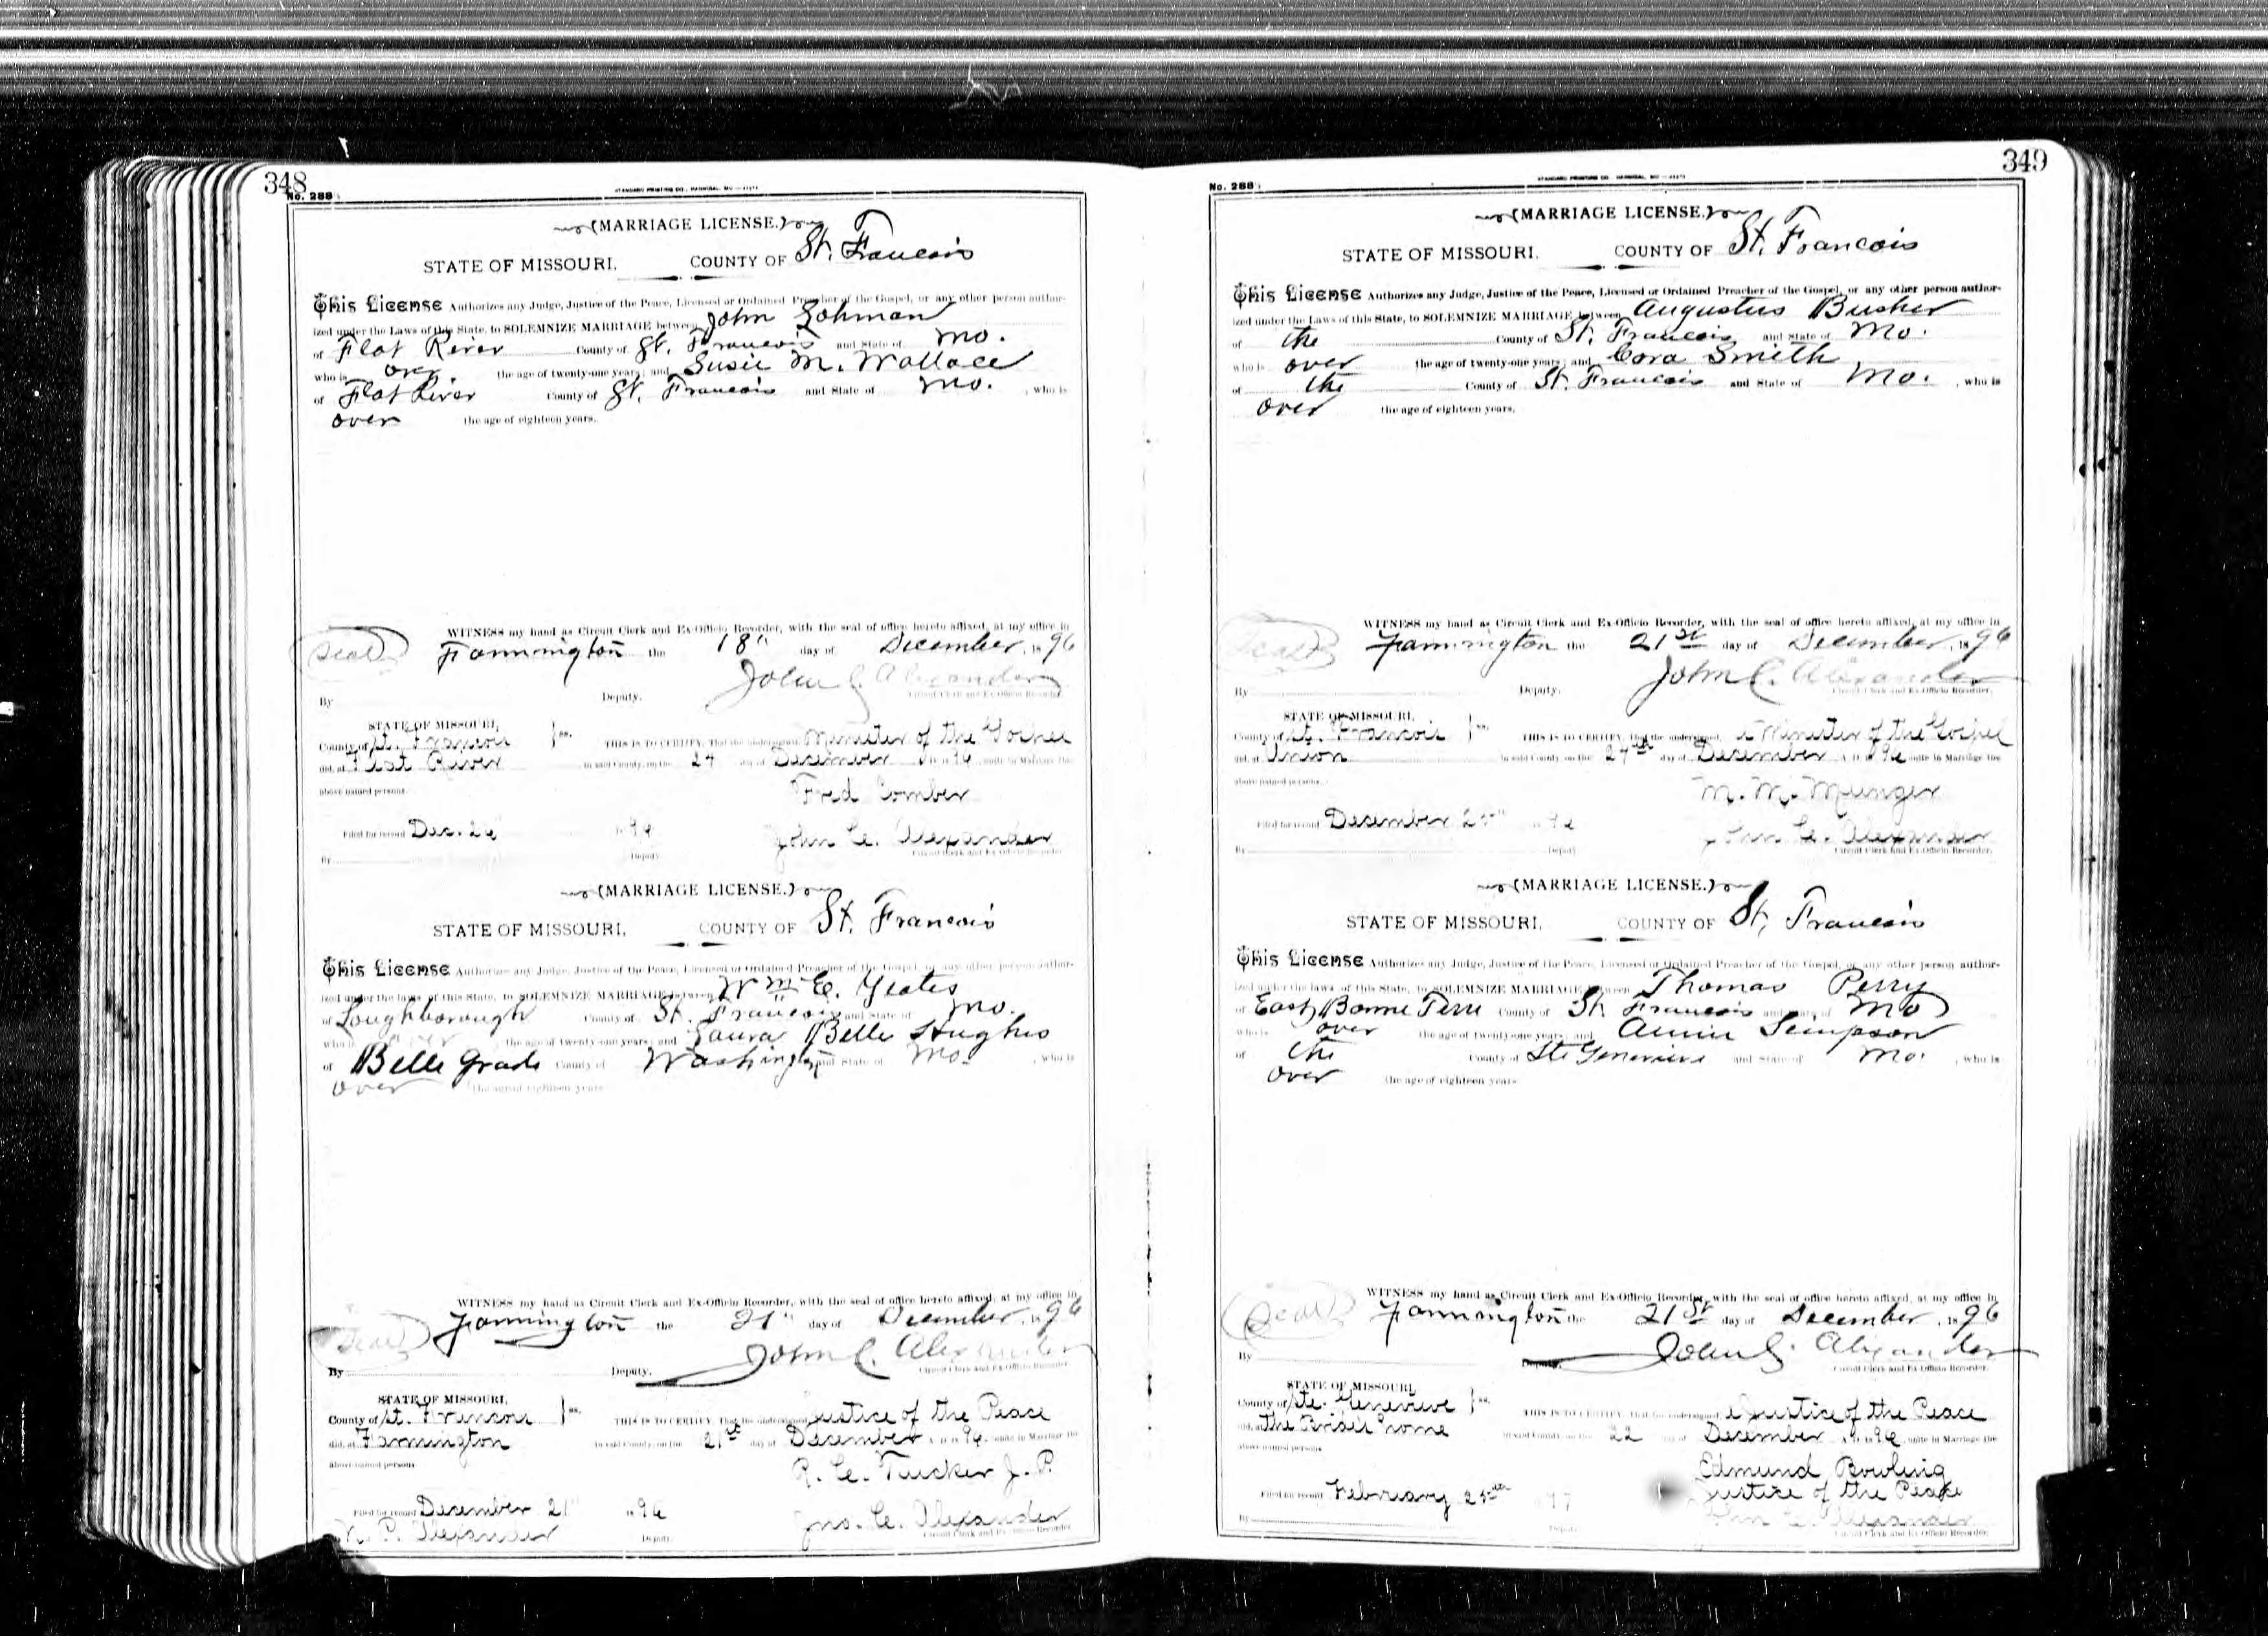 348
No. 288
STANDARD PRINTING CO., HANNIBAL, MO.
(MARRIAGE LICENSE.)
STATE OF MISSOURI, COUNTY OF St. Francois
This License Authorizes any Judge, Justice of the Peace, Licensed or Ordained Preacher of the Gospel, or any other person author-
ized under the Laws of this State, to SOLEMNIZE MARRIAGE between John Lohman
of Flat River County of St. Francois and State of Mo.
who is over the age of twenty-one years; and Susie M. Wallace
of Flat River County of St. Francois and State of Mo. , who is
over the age of eighteen years.
WITNESS my hand as Circuit Clerk and Ex-Officio Recorder, with the seal of office hereto affixed, at my office in
Seal Farmington the 18" day of December, 1896
John C. Alexander
By Deputy. Circuit Clerk and Ex-Officio Recorder.
STATE OF MISSOURI,
County of St. Francois ss. THIS IS TO CERTIFY, That the undersigned Minister of the Gospel
did, at Flat River in said County, on the 24 day of December A. D. 1896 unite in Marriage the
above named persons.
Fred Comber
Filed for record Dec. 26 1896 John C. Alexander
By Deputy Circuit Clerk and Ex-Officio Recorder.
(MARRIAGE LICENSE.)
STATE OF MISSOURI, COUNTY OF St. Francois
This License Authorizes any Judge, Justice of the Peace, Licensed or Ordained Preacher of the Gospel, or any other person author-
ized under the laws of this State, to SOLEMNIZE MARRIAGE between Wm E. Yeates
of Loughborough County of St. Francois and State of Mo.
who is over the age of twenty-one years; and Laura Belle Hughes
of Belle Grade County of Washington and State of Mo. , who is
over the age of eighteen years
WITNESS my hand as Circuit Clerk and Ex-Officio Recorder, with the seal of office hereto affixed, at my office in
Seal Farmington the 21" day of December, 1896
John C. Alexander
By Deputy. Circuit Clerk and Ex-Officio Recorder.
STATE OF MISSOURI,
County of St. Francois ss. THIS IS TO CERTIFY, That the undersigned Justice of the Peace
did, at Farmington in said County, on the 21st day of December A. D. 1896 unite in Marriage the
above named persons
R. C. Tucker J. P.
Filed for record December 21 1896 Jno. C. Alexander
P. Alexander Deputy Circuit Clerk and Ex-Officio Recorder
349
No. 288
STANDARD PRINTING CO., HANNIBAL, MO.
(MARRIAGE LICENSE.)
STATE OF MISSOURI, COUNTY OF St. Francois
This License Authorizes any Judge, Justice of the Peace, Licensed or Ordained Preacher of the Gospel, or any other person author-
ized under the Laws of this State, to SOLEMNIZE MARRIAGE between Augustus Busker
of the County of St. Francois and State of Mo.
who is over the age of twenty-one years; and Cora Smith
of the County of St. Francois and State of Mo. , who is
over the age of eighteen years.
WITNESS my hand as Circuit Clerk and Ex-Officio Recorder, with the seal of office hereto affixed, at my office in
Seal Farmington the 21st day of December, 1896
John C. Alexander
By Deputy. Circuit Clerk and Ex-Officio Recorder.
STATE OF MISSOURI,
County of St. Francois ss. THIS IS TO CERTIFY, That the undersigned, a Minister of the Gospel
did, at Union in said County, on the 24th day of December A. D. 1896 unite in Marriage the
above named persons.
M. M. Munger
Filed for record December 1896 John C. Alexander
By Deputy Circuit Clerk and Ex-Officio Recorder.
(MARRIAGE LICENSE.)
STATE OF MISSOURI, COUNTY OF St. Francois
This License Authorizes any Judge, Justice of the Peace, Licensed or Ordained Preacher of the Gospel, or any other person author-
ized under the laws of this State, to SOLEMNIZE MARRIAGE between Thomas Perry
of East Bonne Terre County of St. Francois and State of Mo
who is over the age of twenty-one years; and Annie Simpson
of the County of Ste Genevieve and State of Mo. , who is
over the age of eighteen years
WITNESS my hand as Circuit Clerk and Ex-Officio Recorder, with the seal of office hereto affixed, at my office in
Seal Farmington the 21st day of December, 1896
John C. Alexander
By Deputy. Circuit Clerk and Ex-Officio Recorder.
STATE OF MISSOURI,
County of Ste. Genevieve ss. THIS IS TO CERTIFY, That the undersigned, a Justice of the Peace
did, at the Bride's home in said County, on the 22 day of December A. D. 1896 unite in Marriage the
above named persons
Edmund Bowling
Justice of the Peace
Filed for record February 25th 97
By Deputy John C. Alexander
Circuit Clerk and Ex-Officio Recorder.